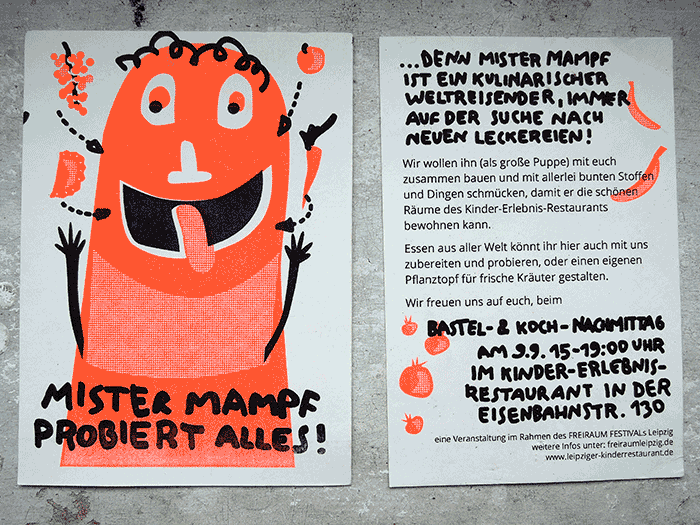 MISTER MAMPF
PROBIERT ALLES!
...DENN MISTER MAMPF
IST EIN KULINARISCHER
WELTREISENDER, IMMER
AUF DER SUCHE NACH
NEUEN LECKEREIEN!
Wir wollen ihn (als große Puppe) mit euch
zusammen bauen und mit allerlei bunten Stoffen
und Dingen schmücken, damit er die schönen
Räume des Kinder-Erlebnis-Restaurants
bewohnen kann.
Essen aus aller Welt könnt ihr hier auch mit uns
zubereiten und probieren, oder einen eigenen
Pflanztopf für frische Kräuter gestalten.
Wir freuen uns auf euch, beim
BASTEL- & KOCH-NACHMITTAG
AM 9.9. 15-19:00 UHR
IM KINDER-ERLEBNIS-
RESTAURANT IN DER
EISENBAHNSTR. 130
eine Veranstaltung im Rahmen des FREIRAUM FESTIVALs Leipzig
weitere Infos unter: freiraumleipzig.de
www.leipziger-kinderrestaurant.de